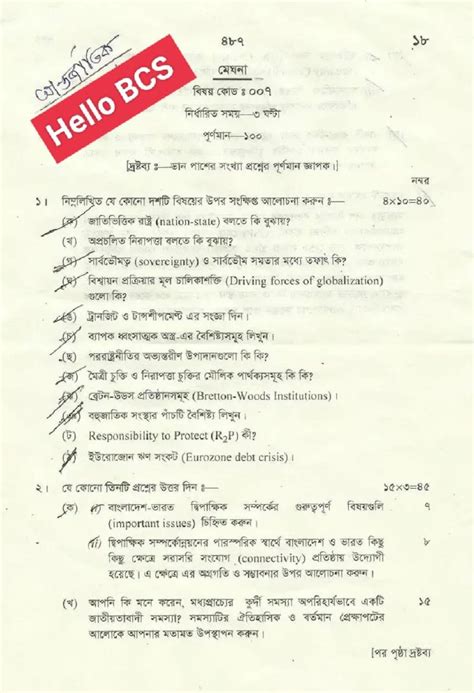 আন্তর্জাতিক
৪৮৭
১৮
Hello BCS
মেঘনা
বিষয় কোড ঃ ০০৭
নির্ধারিত সময়—৩ ঘণ্টা
পূর্ণমান—১০০
[দ্রষ্টব্য ঃ—ডান পাশের সংখ্যা প্রশ্নের পূর্ণমান জ্ঞাপক।]
নম্বর
১। নিম্নলিখিত যে কোনো দশটি বিষয়ের উপর সংক্ষিপ্ত আলোচনা করুন ঃ— ৪×১০=৪০
(ক) জাতিভিত্তিক রাষ্ট্র (nation-state) বলতে কি বুঝায়?
(খ) অপ্রচলিত নিরাপত্তা বলতে কি বুঝায়?
(গ) সার্বভৌমত্ব (sovereignty) ও সার্বভৌম সমতার মধ্যে তফাৎ কি?
(ঘ) বিশ্বায়ন প্রক্রিয়ার মূল চালিকাশক্তি (Driving forces of globalization)
গুলো কি?
(ঙ) ট্রানজিট ও টান্সশীপমেন্ট এর সংজ্ঞা দিন।
(চ) ব্যাপক ধ্বংসাত্মক অস্ত্র-এর বৈশিষ্ট্যসমূহ লিখুন।
(ছ) পররাষ্ট্রনীতির অভ্যন্তরীণ উপাদানগুলো কি কি?
(জ) মৈত্রী চুক্তি ও নিরাপত্তা চুক্তির মৌলিক পার্থক্যসমূহ কি কি?
(ঝ) ব্রেটন-উডস প্রতিষ্ঠানসমূহ (Bretton-Woods Institutions)।
(ঞ) বহুজাতিক সংস্থার পাঁচটি বৈশিষ্ট্য লিখুন।
(ট) Responsibility to Protect (R₂P) কী?
(ঠ) ইউরোজোন ঋণ সংকট (Eurozone debt crisis)।
২। যে কোনো তিনটি প্রশ্নের উত্তর দিন ঃ— ১৫×৩=৪৫
(ক) (i) বাংলাদেশ-ভারত দ্বিপাক্ষিক সম্পর্কের গুরুত্বপূর্ণ বিষয়গুলি ৭
(important issues) চিহ্নিত করুন।
(ii) দ্বিপাক্ষিক সম্পর্কোন্নয়নের পারস্পরিক স্বার্থে বাংলাদেশ ও ভারত কিছু ৮
কিছু ক্ষেত্রে সরাসরি সংযোগ (connectivity) প্রতিষ্ঠায় উদ্যোগী
হয়েছে। এ ক্ষেত্রে এর অগ্রগতি ও সম্ভাবনার উপর আলোচনা করুন।
(খ) আপনি কি মনে করেন, মধ্যপ্রাচ্যের কুর্দী সমস্যা অপরিহার্যভাবে একটি ১৫
জাতীয়তাবাদী সমস্যা? সমস্যাটির ঐতিহাসিক ও বর্তমান প্রেক্ষাপটের
আলোকে আপনার মতামত উপস্থাপন করুন।
[পর পৃষ্ঠা দ্রষ্টব্য